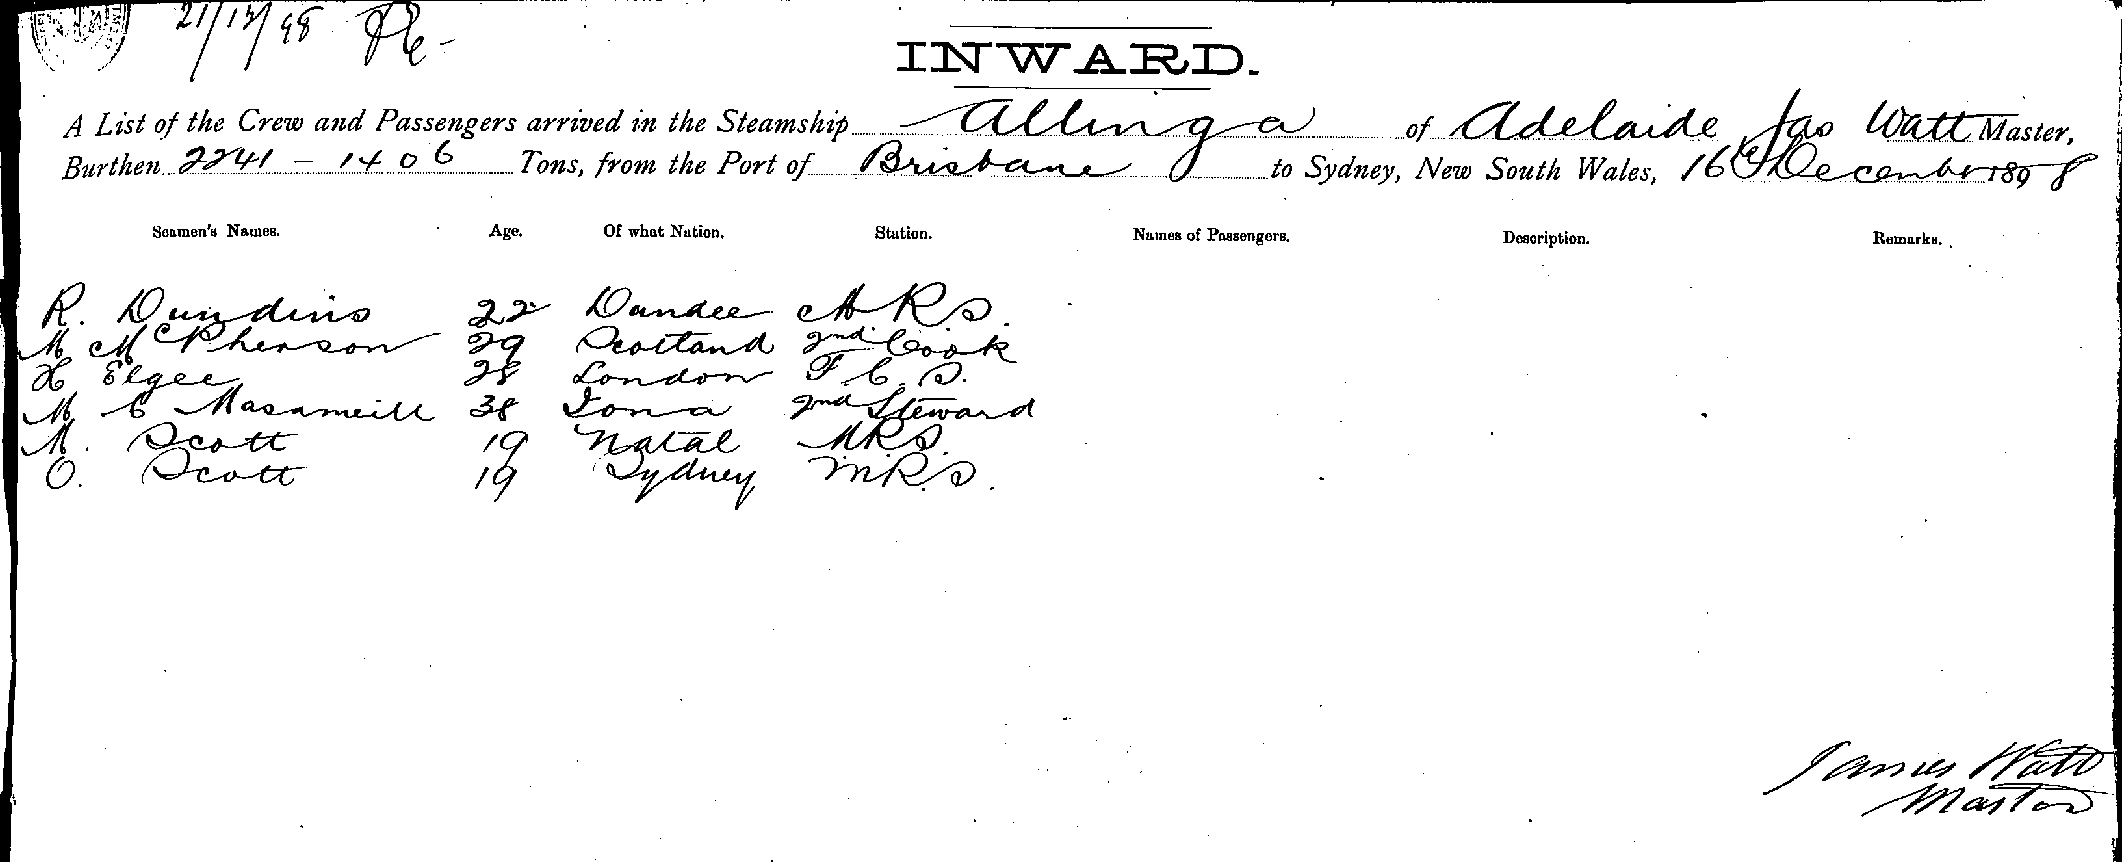 21/12/98
INWARD.
A List of the Crew and Passengers arrived in the Steamship Allinga of Adelaide Jas Watt Master,
Burthen 2241 - 1406 Tons, from the Port of Brisbane to Sydney, New South Wales, 16th December 1898
Seamen's Names. Age. Of what Nation. Station. Names of Passengers. Description. Remarks.
R. Dundins 22 Dundee M R S.
M McPherson 29 Scotland 2nd Cook
H Elgee 28 London F C S.
M C Masameill 38 Iona 2nd Steward
M. Scott 19 Natal MRS.
O. Scott 19 Sydney MRS.
James Watt
Master